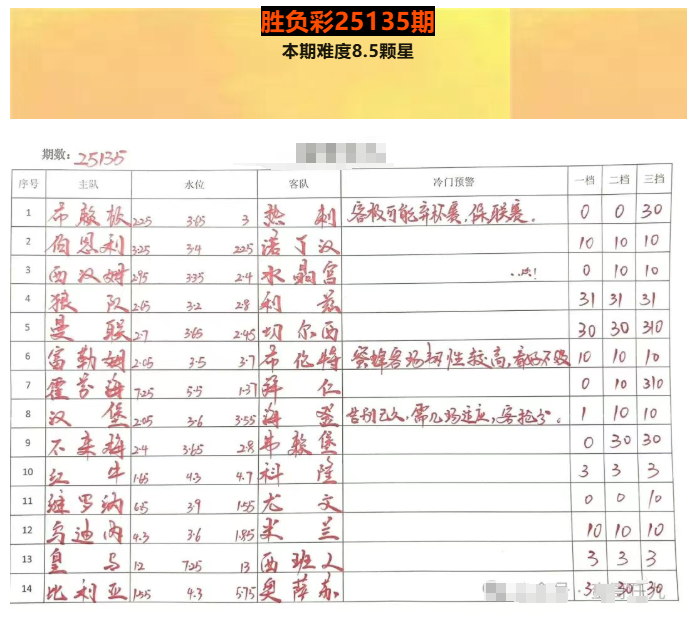 胜负彩25135期
本期难度8.5颗星
期数: 25135
序号 主队 水位 客队 冷门预警 一档 二档 三挡
1 布莱顿 2.25 3.65 3 热刺 客极可能弃杯赛,保联赛。 0 0 30
2 伯恩利 3.25 3.4 2.25 诺丁汉 10 10 10
3 西汉姆 2.95 3.35 2.4 水晶宫 0 10 10
4 狼队 2.65 3.2 2.8 利兹 31 31 31
5 曼联 2.7 3.65 2.45 切尔西 30 30 310
6 富勒姆 2.05 3.5 3.7 布伦特 蜜蜂客场韧性较高, 10 10 10
7 霍芬海 7.25 5.5 1.37 拜仁 0 10 310
8 汉堡 2.05 3.6 3.55 海登 告别已久,需几场适应,客抢分。 1 10 10
9 不来梅 2.4 3.65 2.8 弗赖堡 0 30 30
10 红牛 1.65 4.3 4.7 科隆 3 3 3
11 维罗纳 6.5 3.9 1.55 尤文 0 0 10
12 乌迪内 4.3 3.6 1.85 米兰 10 10 10
13 皇马 1.2 7.25 13 西班人 3 3 3
14 比利亚 1.55 4.3 5.75 奥萨苏 3 30 30